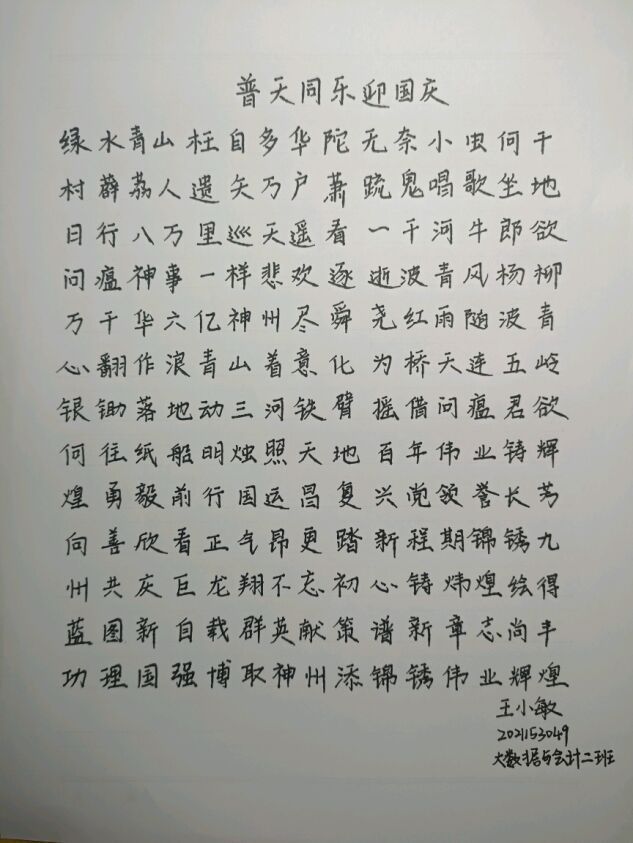 普天同乐迎国庆
绿水青山枉自多华陀无奈小虫何千
村薜荔人遗矢万户萧疏鬼唱歌坐地
日行八万里巡天遥看一千河牛郎欲
问瘟神事一样悲欢逐逝波青风杨柳
万千华六亿神州尽舜尧红雨随波青
心翻作浪青山着意化为桥天连五岭
银锄落地动三河铁臂摇借问瘟君欲
何往纸船明烛照天地百年伟业铸辉
煌勇毅前行国运昌复兴党领誉长芳
向善欣看正气昂更踏新程期锦锈九
州共庆巨龙翔不忘初心铸炜煌绘得
蓝图新自载群英献策谱新章志尚丰
功理国强博取神州添锦锈伟业辉煌
王小敏
202153049
大数据与会计二班